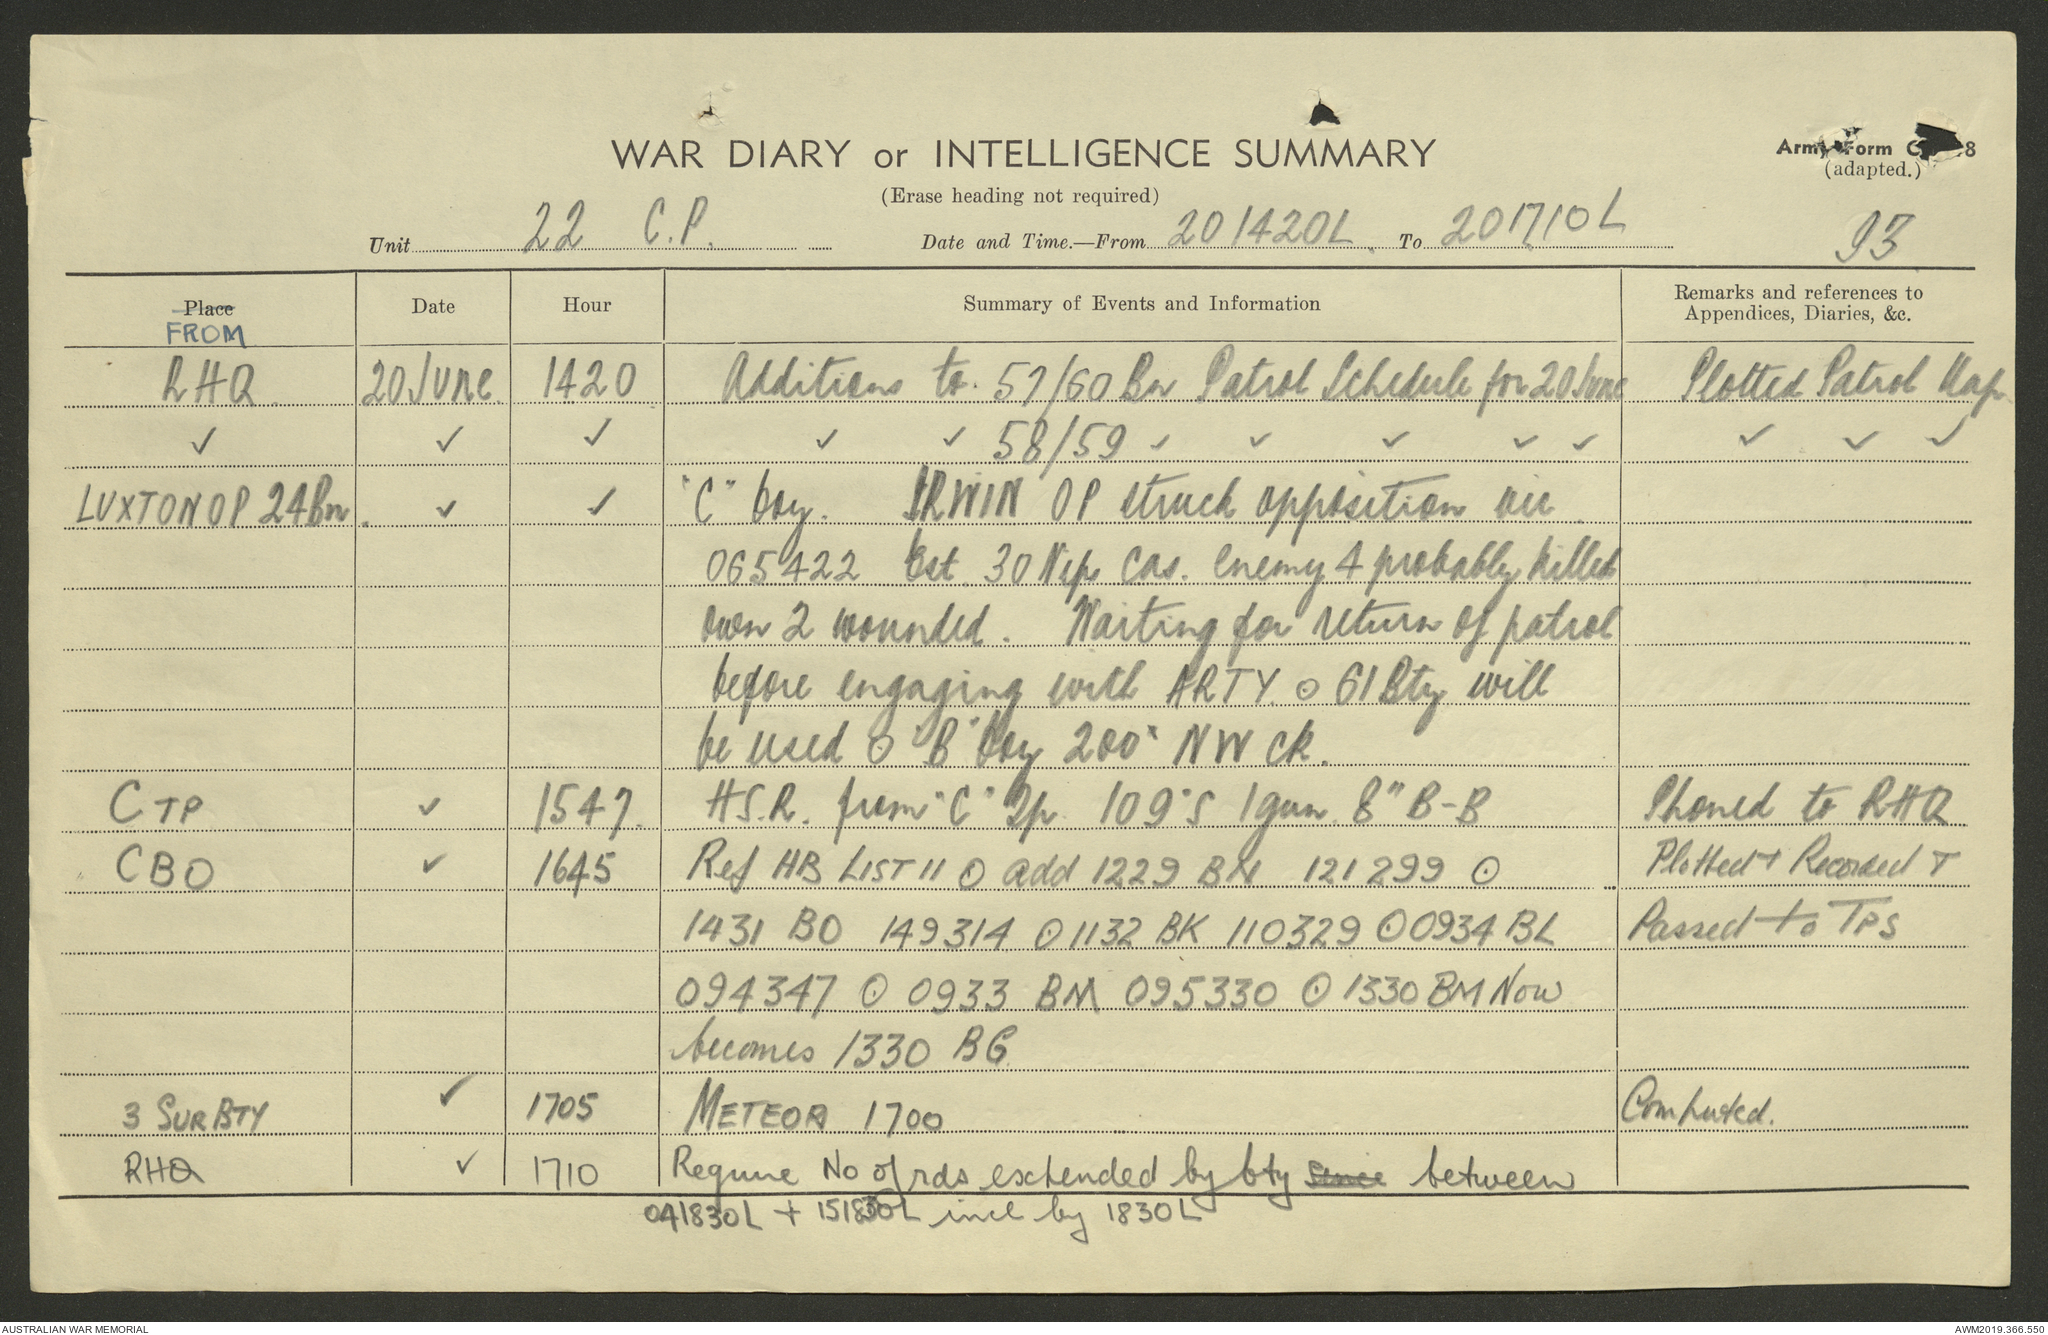 WAR DIARY or INTELLIGENCE SUMMARY
(Erase heading not required)
Army Form C
8
(adapted.)
Unit 22 C.P. Date and Time.—From 201420L To 201710L
93
Place Date Hour Summary of Events and Information Remarks and references to Appendices, Diaries, &c.
FROM
RHQ 20 June 1420 Additions to 57/60 Bn Patrol Schedule for 20 June Plotted Patrol Map
✓ ✓ ✓ ✓ ✓ 58/59 ✓ ✓ ✓ ✓ ✓ ✓ ✓ ✓
LUXTON OP 24 Bn. ✓ ✓ "C" Coy. IRWIN OP struck opposition vic
065422 Est. 30 Nips Cas. enemy 4 probably killed
own 2 wounded. Waiting for return of patrol
before engaging with ARTY. ⊙ 61 Bty will
be used ⊙ "B" Coy 200ˣ NW CK.
C TP ✓ 1547. H.S.R. from "C" Tp. 109's 1 gun 8" B-B Phoned to RHQ
CBO ✓ 1645 Ref HB LIST 11 ⊙ add 1229 BN 121299 ⊙ Plotted + Recorded +
1431 BO 149314 ⊙ 1132 BK 110329 ⊙ 0934 BL Passed to TPS
094347 ⊙ 0933 BM 095330 ⊙ 1330 BM Now
becomes 1330 BG
3 SUR BTY ✓ 1705 METEOR 1700 Computed.
RHQ ✓ 1710 Require No of rds exchended by bty since between
041830L + 151830L incl by 1830L
AUSTRALIAN WAR MEMORIAL
AWM2019.366.550